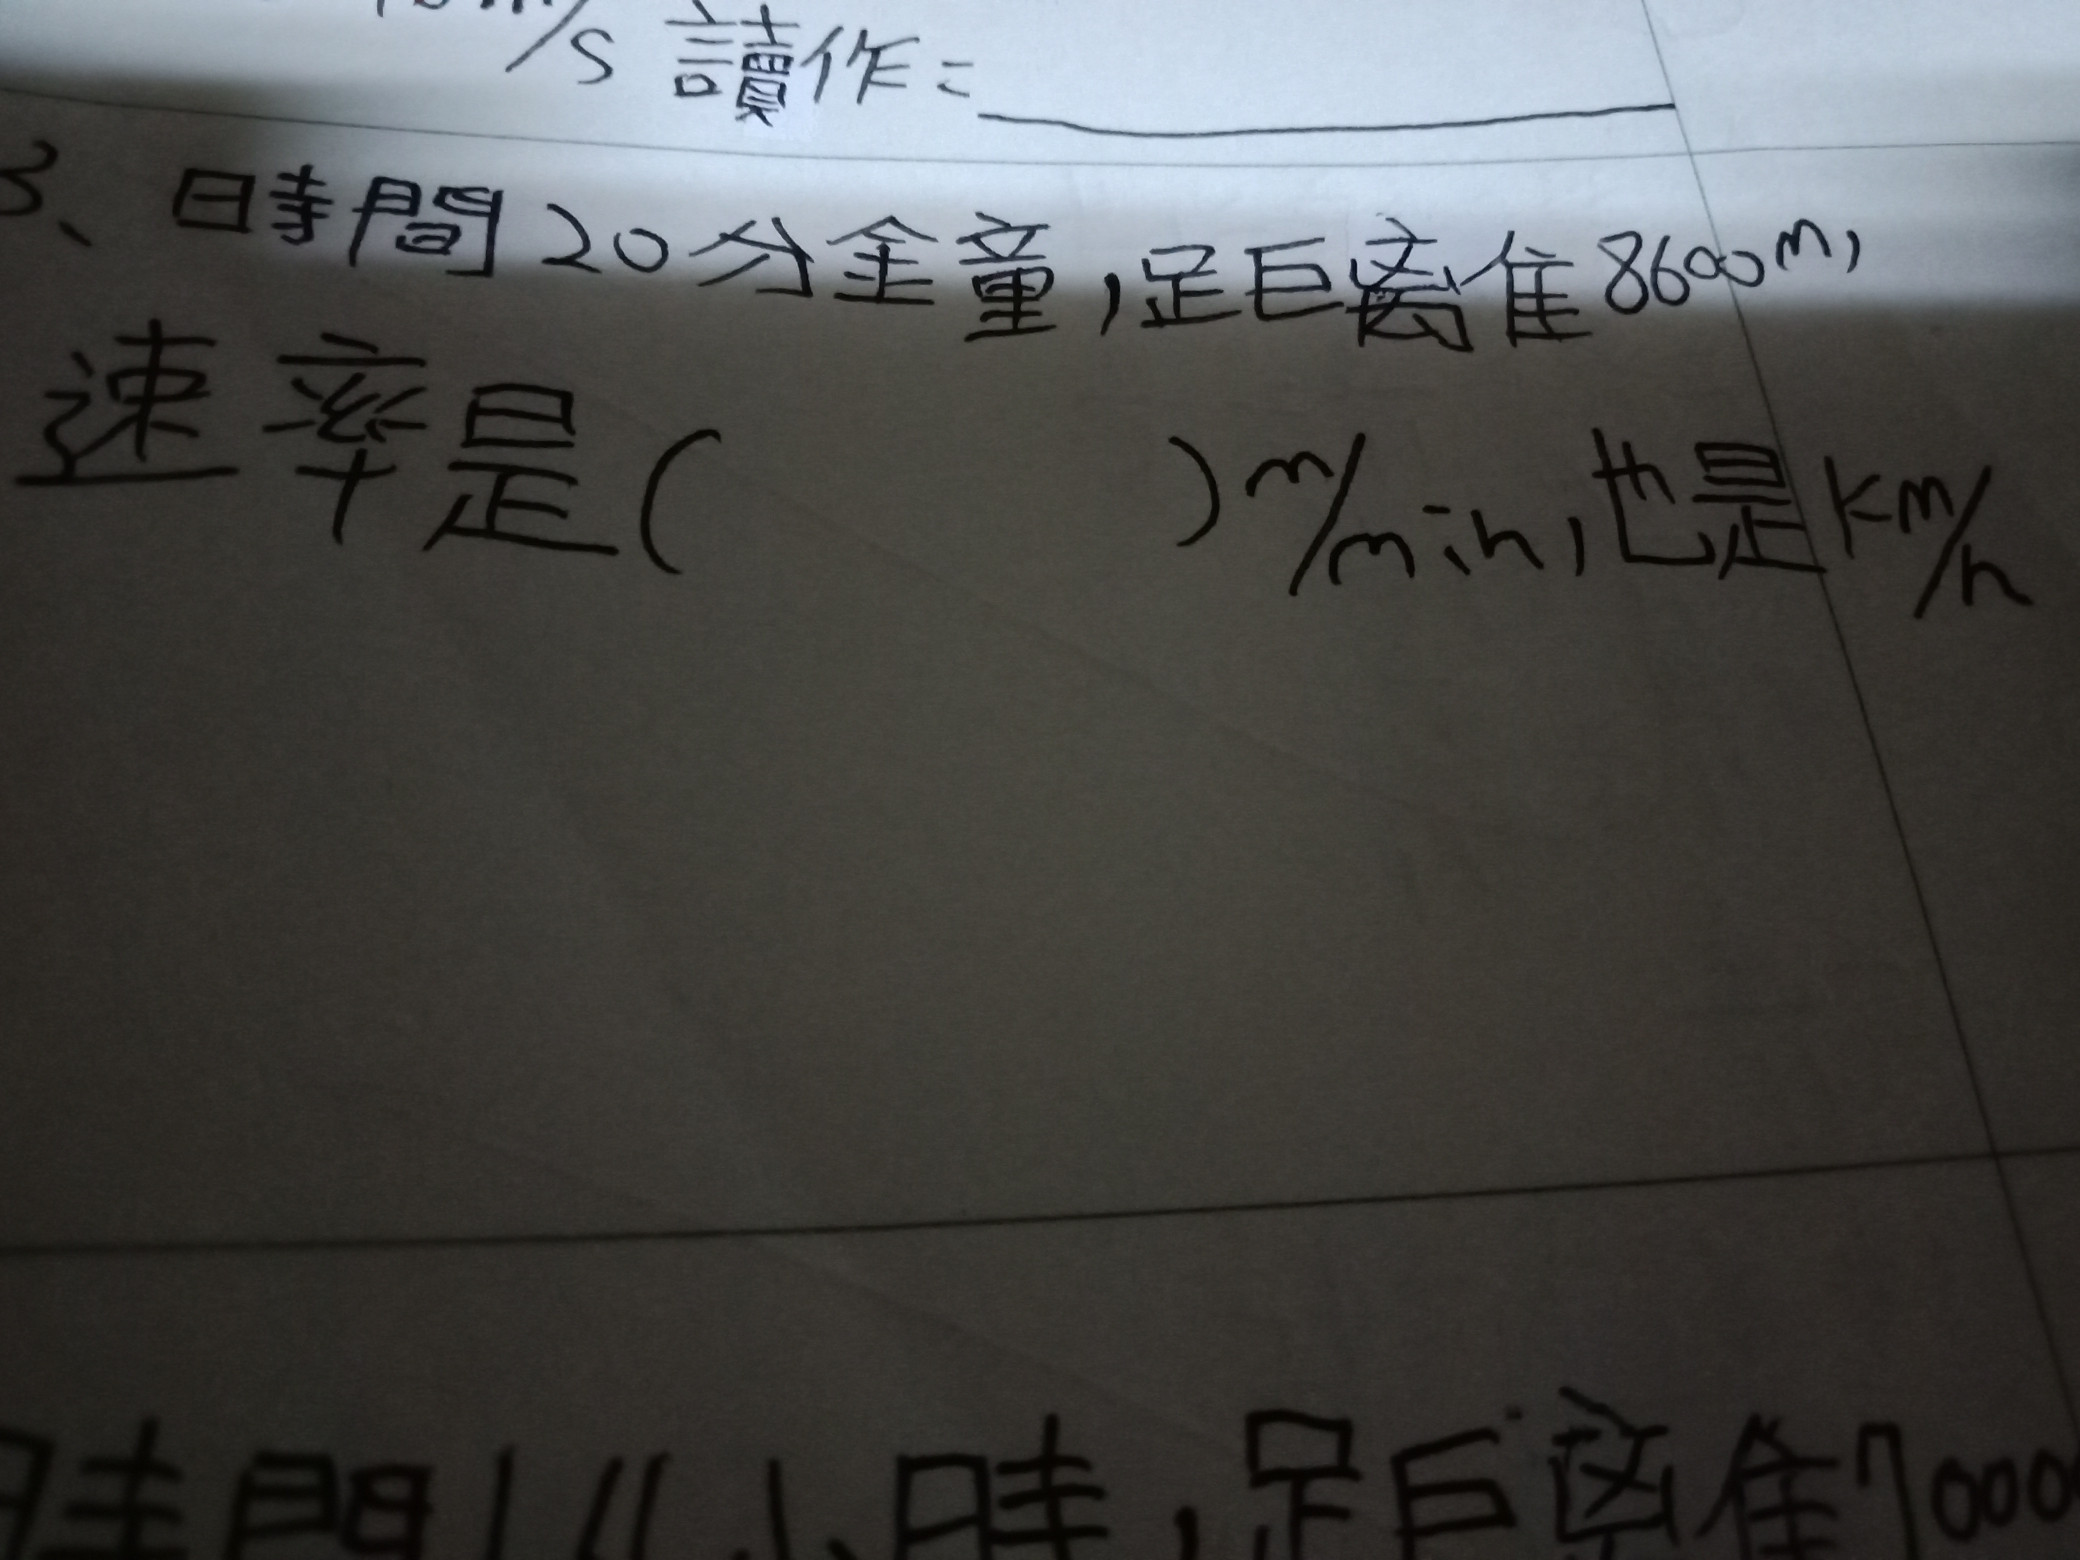 m/s 讀作:
3、時間20分鐘,距離8600m,
速率是( )m/min,也是km/h
時間14小時,距離7000